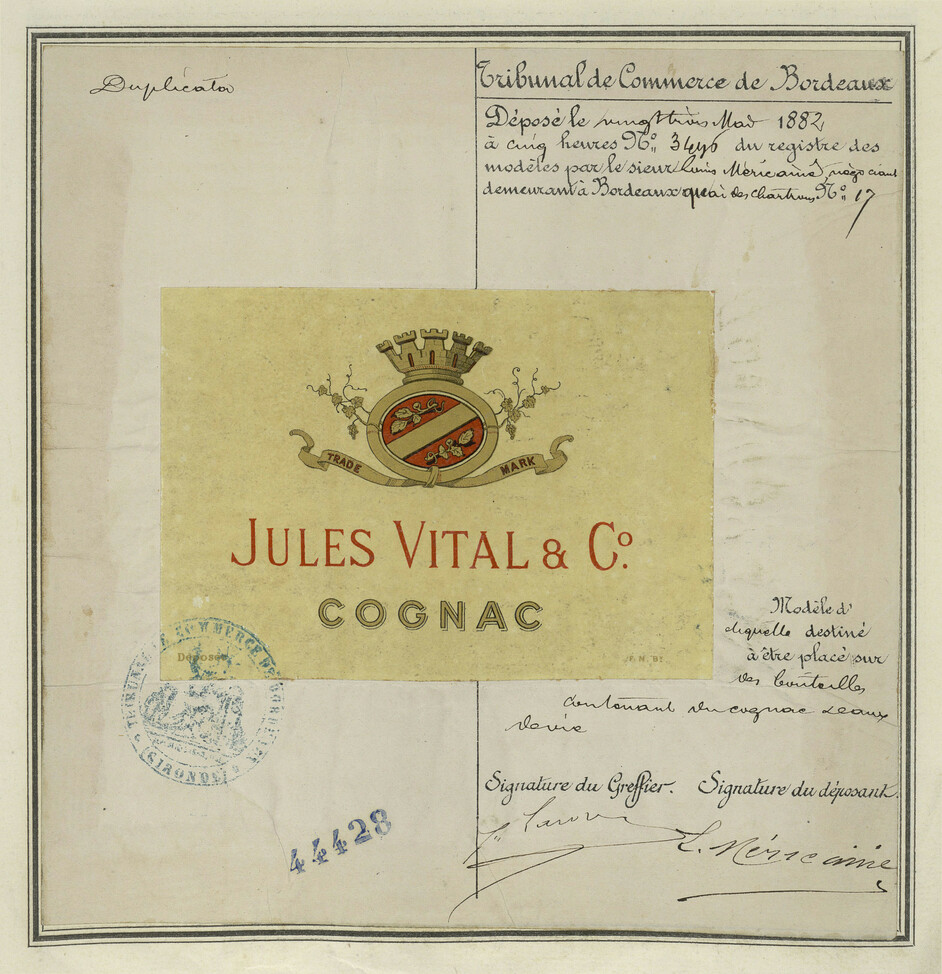 Duplicata
Tribunal de Commerce de Bordeaux
Déposé le vingt trois Mai 1882
à cinq heures Nº 3496 du registre des
modèles par le sieur Louis Méricaine, négociant
demeurant à Bordeaux quai des Chartrons Nº 17
TRADE MARK
JULES VITAL & Cº.
COGNAC
Déposé
TRIBUNAL DE COMMERCE DE BORDEAUX
(GIRONDE)
Modèle d'
etiquette destiné
à être placé sur
des bouteilles
contenant du cognac eaux
de vie
Signature du Greffier. Signature du déposant.
L. Méricaine
44428